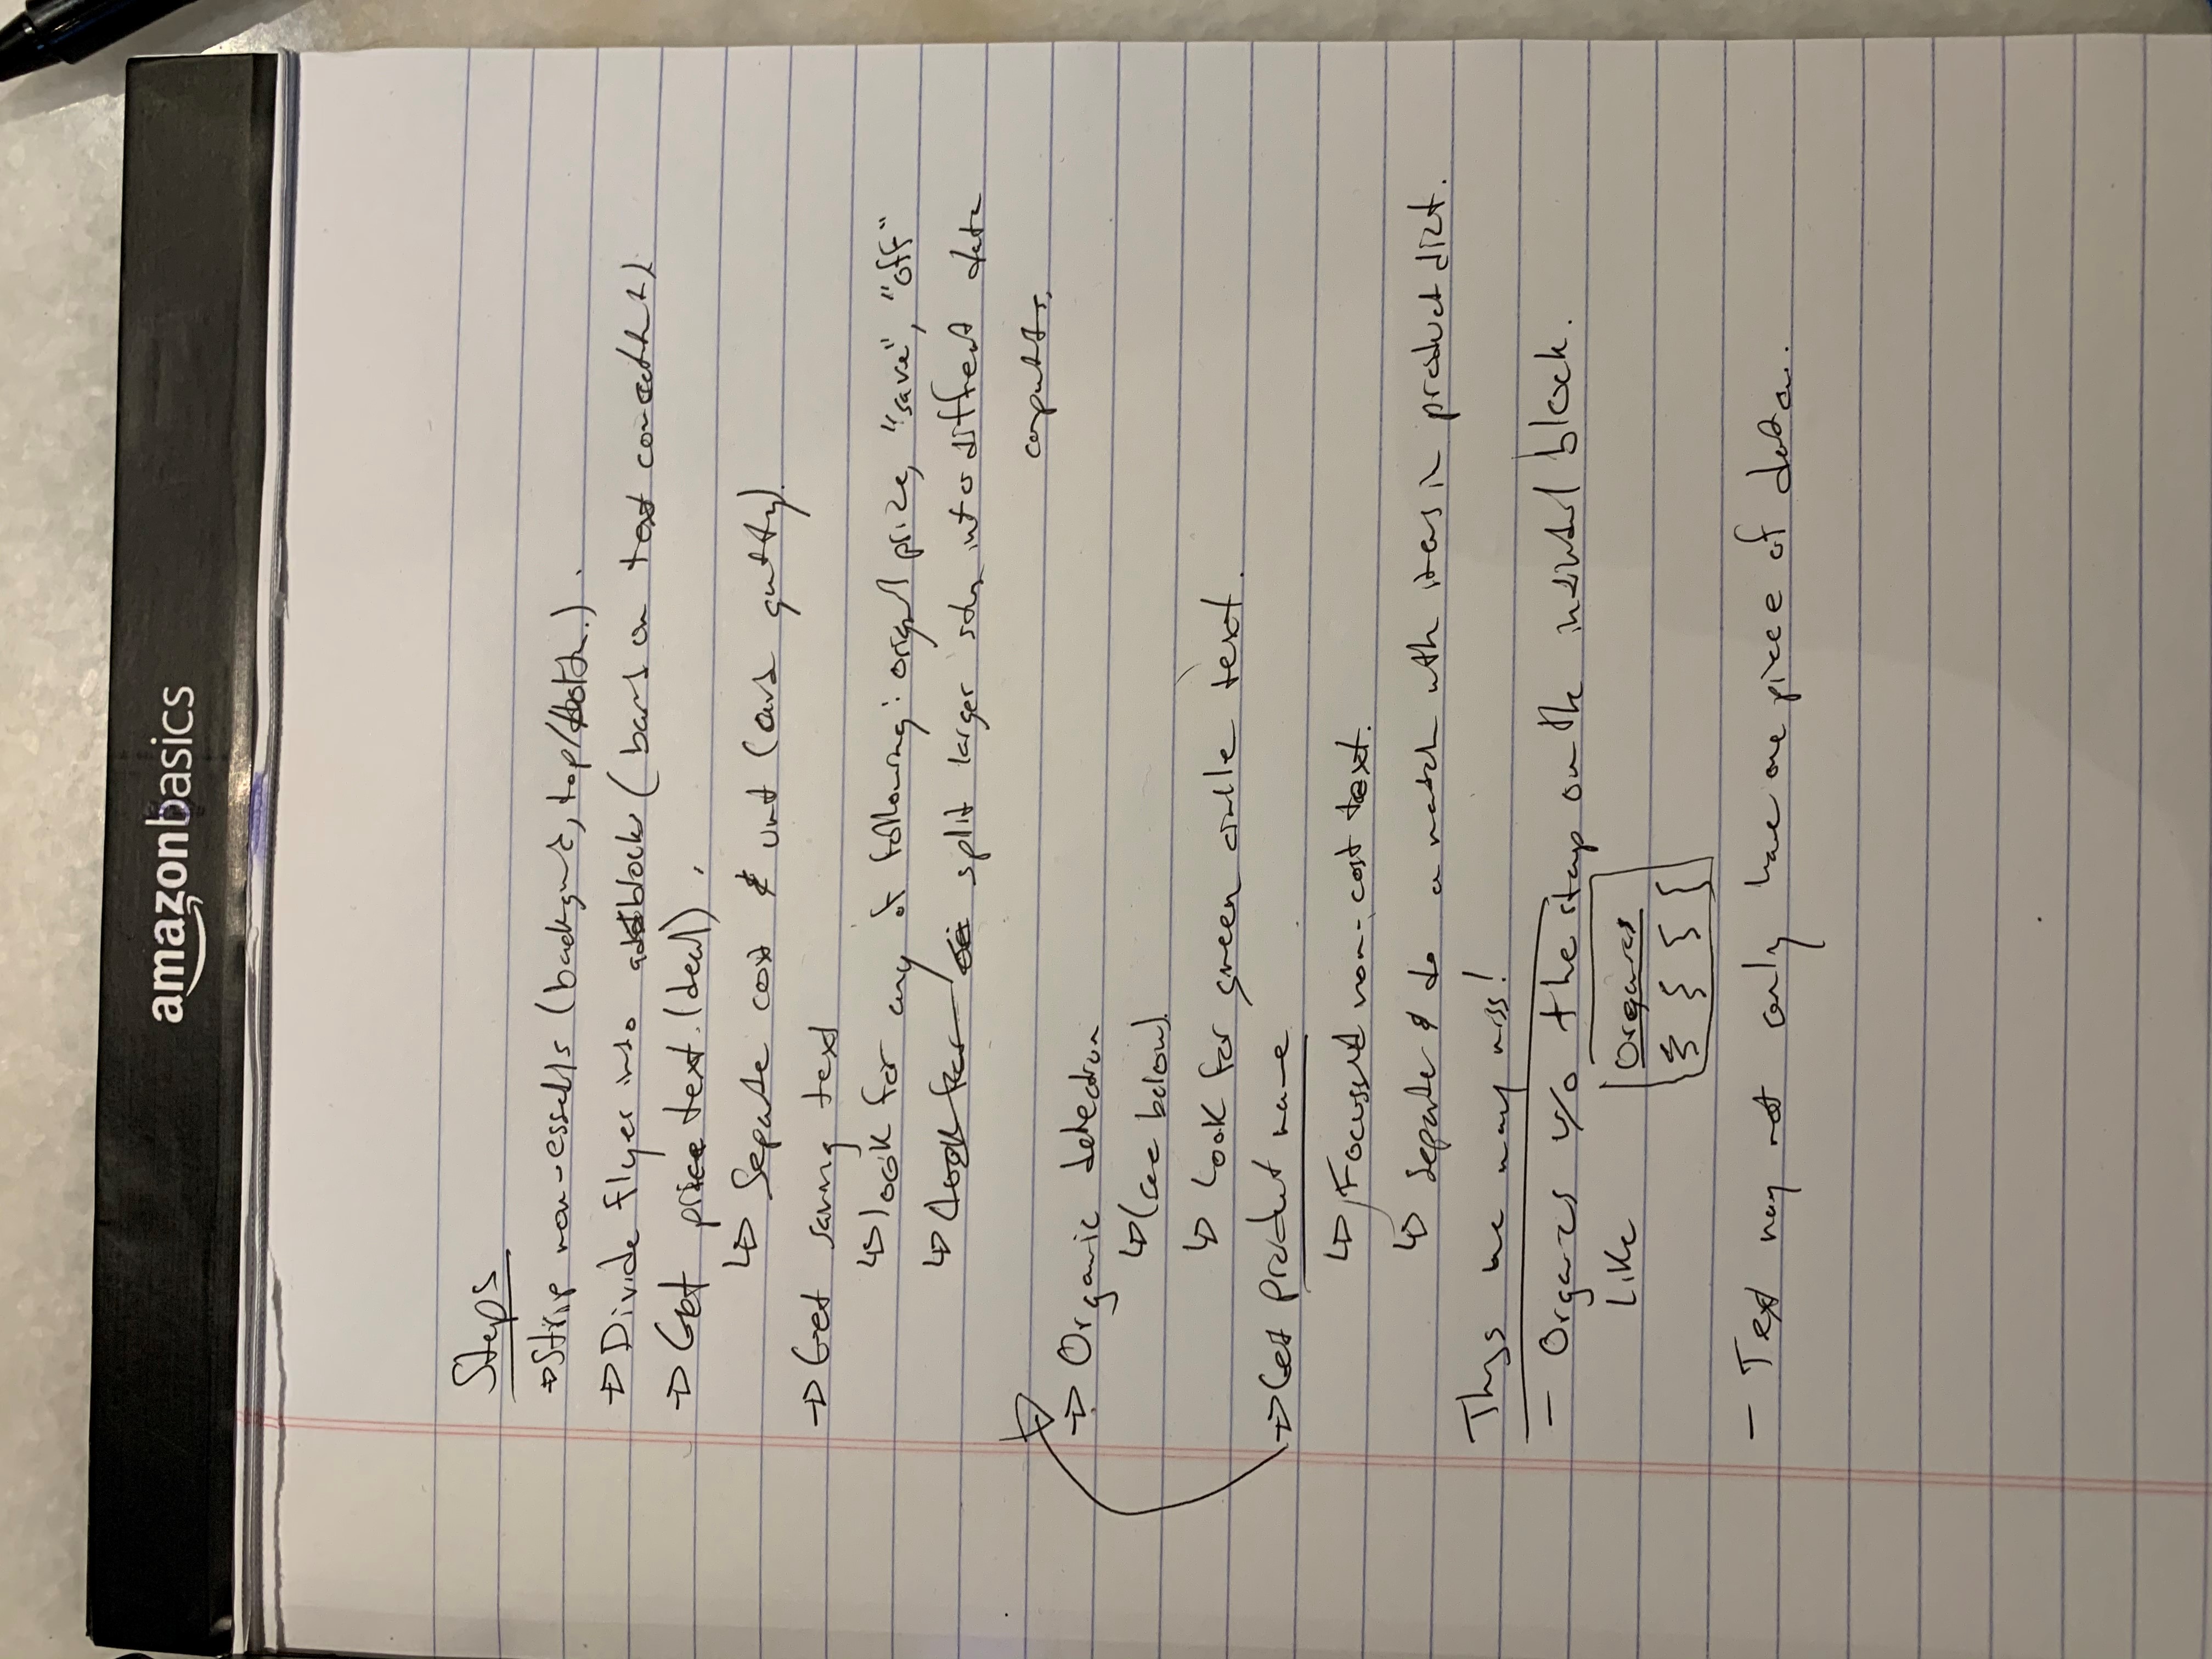 amazonbasics
Steps
→ Strip non-essetls (backgrnd, top/
→ Divide flyer into block (based on text
→ Get price text (deal),
↳ Separate cost & unit (and
→ Get saving text
↳ look for any of following: orignl price, "save", "off"
↳ Look for split larger into diffrent data
→ Organic detection
↳ (see below)
↳ Look for green circle text.
→ Get product name
↳ Focused non-cost text.
↳ separate & do a match with items in product dict.
Thigs we may miss!
- Organics w/o the stamp on the block.
Like Organics
- Text may not only have one piece of data.